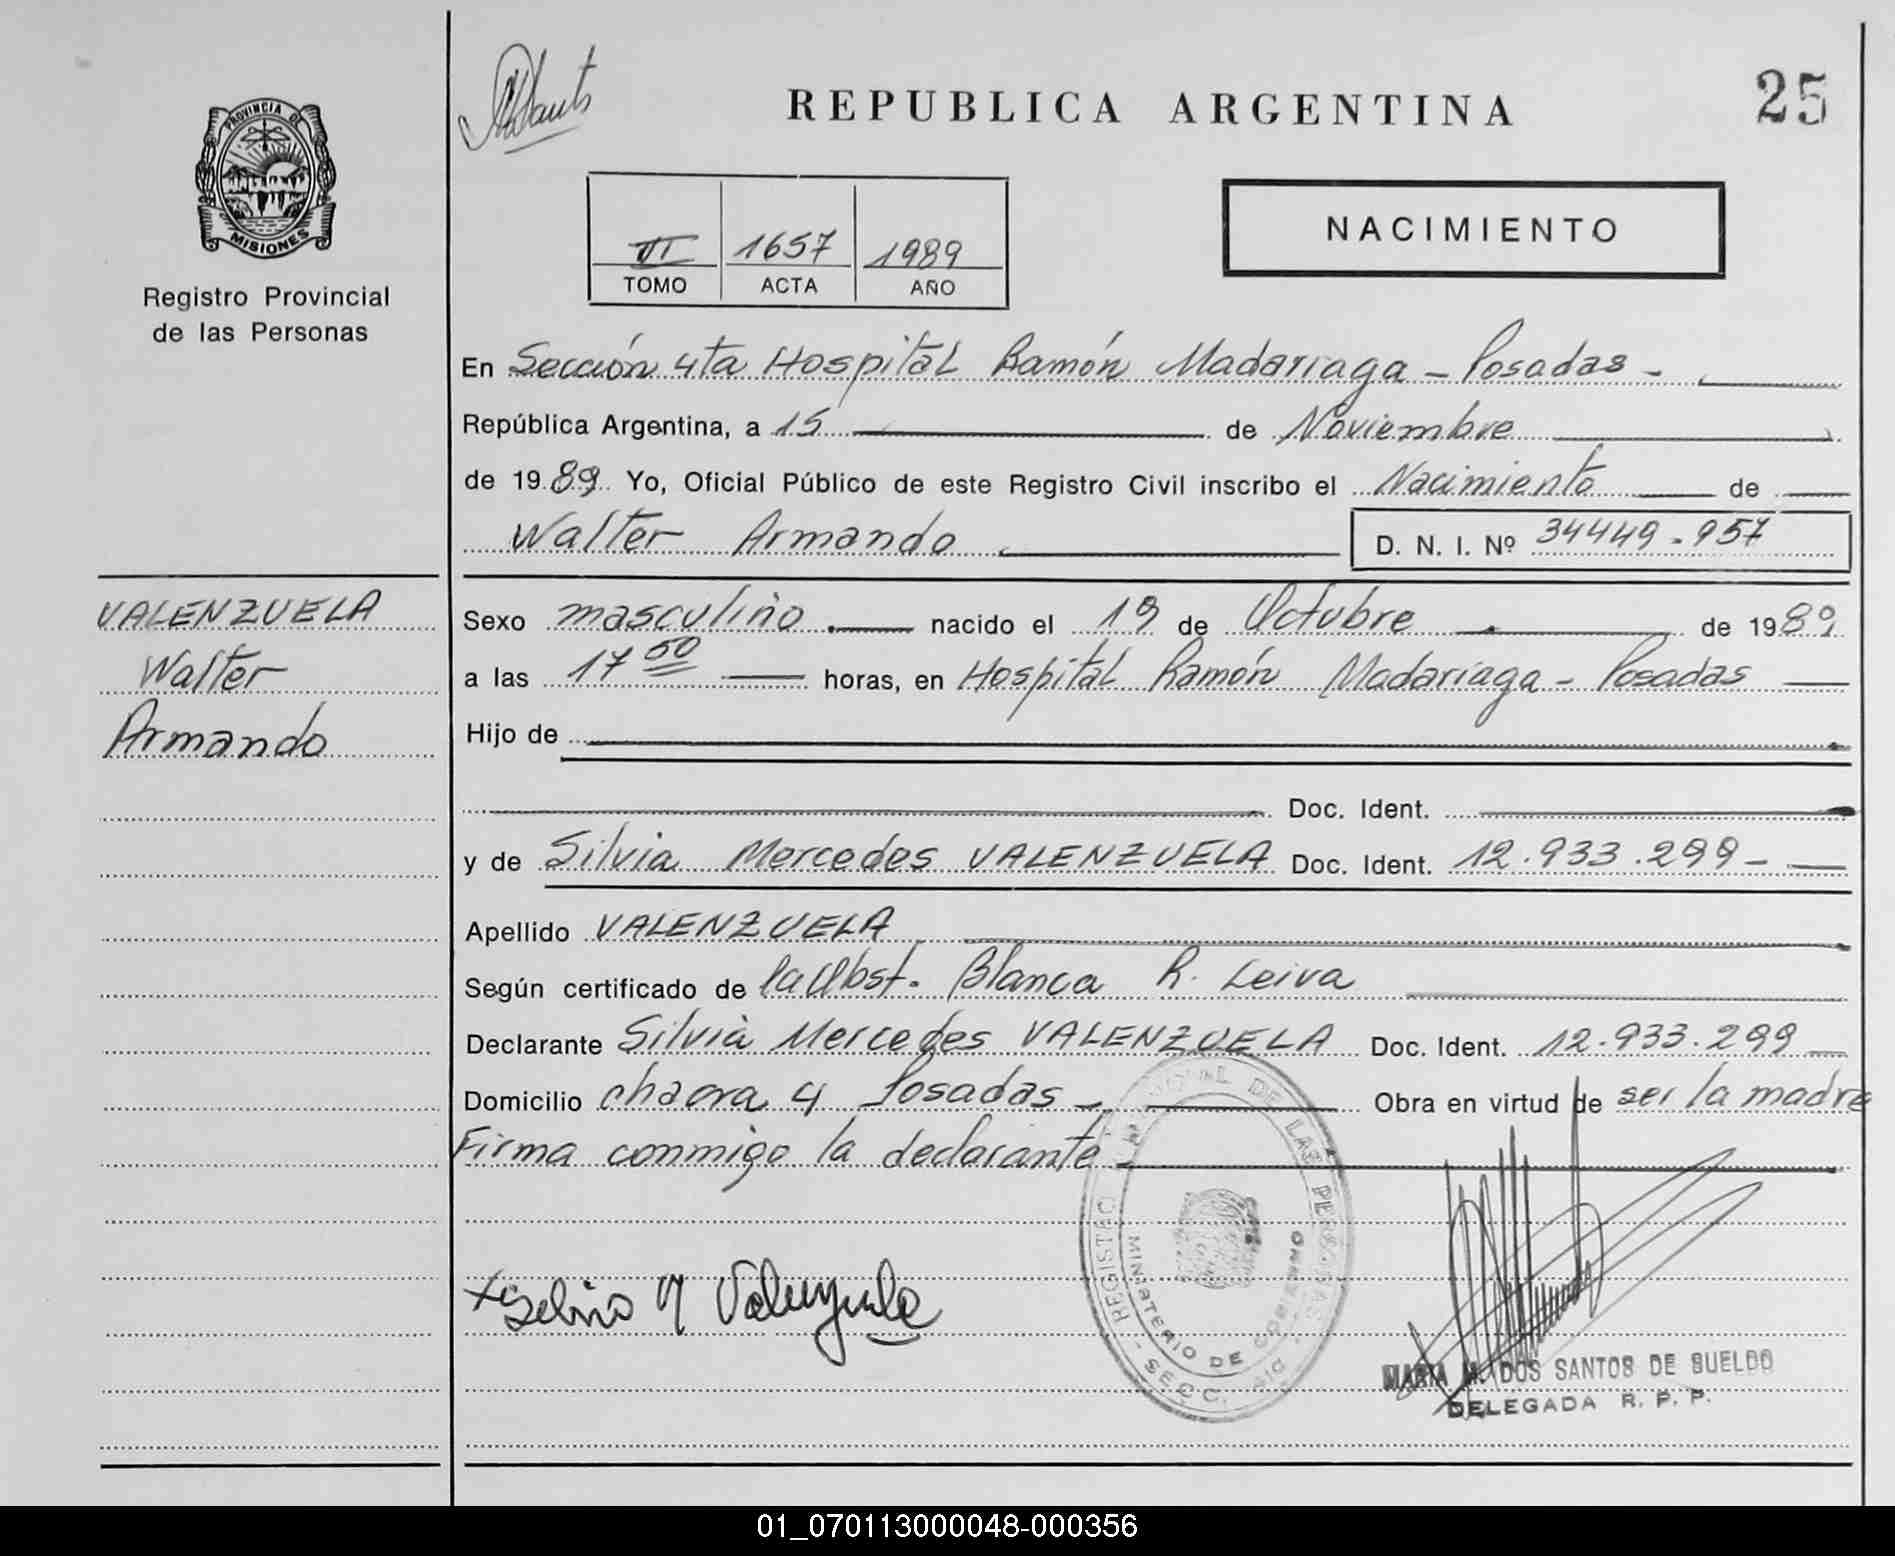 25
REPUBLICA ARGENTINA
PROVINCIA DE
MISIONES
Registro Provincial
de las Personas
NACIMIENTO
VI 1657 1989
TOMO ACTA AÑO
En Sección 4ta Hospital Ramón Madariaga - Posadas -
República Argentina, a 15 de Noviembre
de 1989 Yo, Oficial Público de este Registro Civil inscribo el Nacimiento de
Walter Armando D. N. I. Nº 34449.957
VALENZUELA
Walter
Armando
Sexo masculino nacido el 19 de Octubre de 1989
a las 17 50 horas, en Hospital Ramón Madariaga - Posadas
Hijo de
Doc. Ident.
y de Silvia Mercedes VALENZUELA Doc. Ident. 12.933.299 -
Apellido VALENZUELA
Según certificado de la Obst. Blanca R. Leiva
Declarante Silvia Mercedes VALENZUELA Doc. Ident. 12.933.299
Domicilio chacra 4 Posadas - Obra en virtud de ser la madre
Firma conmigo la declarante -
REGISTRO DE LAS PERSONAS
MINISTERIO DE GOBIERNO
SECC.
Silvia M Valenzuela
MARIA M. DOS SANTOS DE SUELDO
DELEGADA R. P. P.
01_070113000048-000356